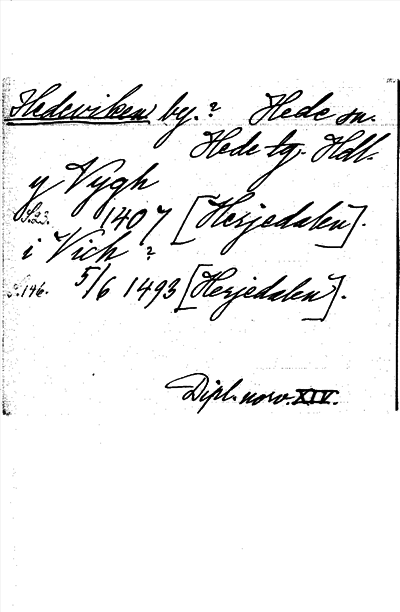 Hedeviken by.? Hede sn.
Hede tg. Hdl.
y Vygh
S.23. 1407 [Herjedalen].
i Vich ?
S.146. 5/6 1493 [Herjedalen].
Dipl. norv. XIV.